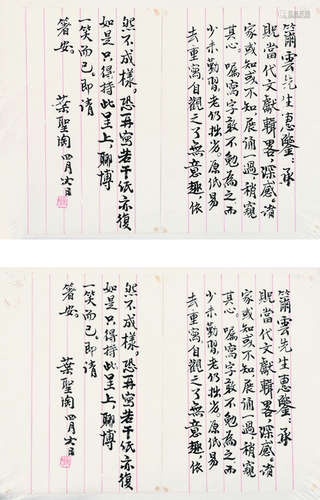 雲先生惠鑒：承
貺當代文獻輯畧，深感。資
家或知或不知，展誦一過，稍窺
其心。囑寫字敢不勉為之，而
少未勤習，老仍拙劣。原紙易
去重寫，自觀之了無意趣，依
然不成樣，恐再寫若干紙亦復
如是，只得將此呈上，聊博
一笑而已。即請
箸安
葉聖陶 四月六日
雲先生惠鑒：承
貺當代文獻輯畧，深感。資
家或知或不知，展誦一過，稍窺
其心。囑寫字敢不勉為之，而
少未勤習，老仍拙劣。原紙易
去重寫，自觀之了無意趣，依
然不成樣，恐再寫若干紙亦復
如是，只得將此呈上，聊博
一笑而已。即請
箸安
葉聖陶 四月六日